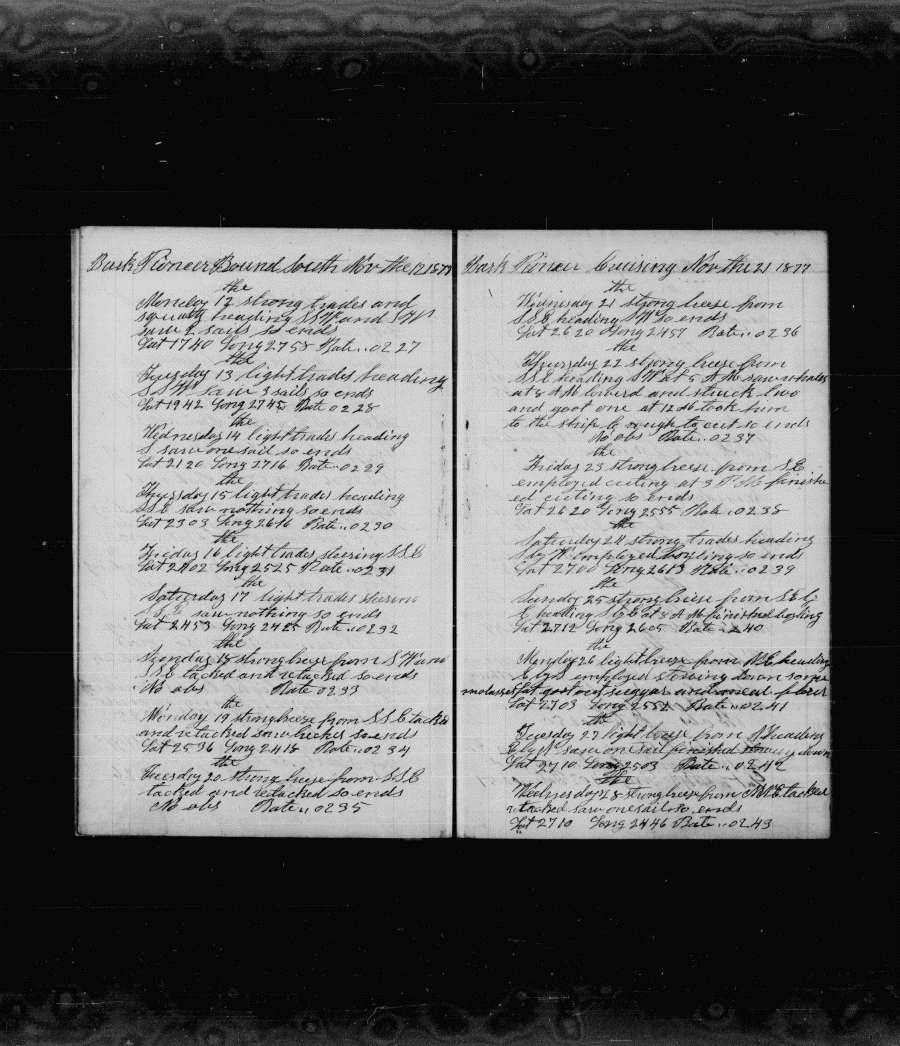 Bark Pioneer Bound South Nov the 12 1877
the
Monday 12 strong trades and
squally heading SSW and SW
saw 2 sails so ends
Lat 1740 Long 2755 Rate .. 0227
the
Tuesday 13 light trades heading
SSW saw 3 sails so ends
Lat 1942 Long 2745 Rate 0228
the
Wednesday 14 light trades heading
S saw one sail so ends
Lat 2120 Long 2716 Rate .. 0229
the
Thursday 15 light trades heading
SSE saw nothing so ends
Lat 2303 Long 2616 Rate .. 0230
the
Friday 16 light trades steering SSE
Lat 2402 Long 2525 Rate .. 0231
the
Saturday 17 light trades steering
SSE saw nothing so ends
Lat 2453 Long 2425 Rate .. 0232
the
Sunday 18 strong breeze from SW and
SSE tacked and retacked so ends
No obs Rate 0233
the
Monday 19 strong breeze from SSE tacked
and retacked saw so ends
Lat 2536 Long 2418 Rate .. 0234
the
Tuesday 20 strong breeze from SSE
tacked and retacked so ends
No obs Rate .. 0235
Bark Pioneer Cruising Nov the 21 1877
the
Wednisday 21 strong breese from
SSE heading SW so ends
Lat 2620 Long 2457 Rate .. 0236
the
Thursday 22 strong breese from
SSE heading SW at 5 AM saw whales
at 8 AM lowerd and struck two
and goot one at 12 M took him
to the ship to rough to cut so ends
No obs Rate .. 0237
the
Friday 23 strong breese from SE
employed cutting at 3 PM finishe
ed cutting so ends
Lat 2620 Long 2555 Rate .. 0238
the
Saturday 24 strong trades heading
S by W employed boiling so ends
Lat 2700 Long 2613 Rate .. 0239
the
Sunday 25 strong breese from SE
E heading at 8 AM finished boiling
Lat 2712 Long 2605 Rate .. 240
the
Monday 26 light breese from NE heading
E by S employed stowing down some
molasses got out and flour
Lat 2703 Long 2552 Rate .. 0241
the
Tuesday 27 light breese from N heading
E by N saw on sail finished down
Lat 2710 Long 2503 Rate .. 0242
the
Wednesday 28 strong breese from tacked
retacked saw one sail so ends
Lat 2710 Long 2446 Rate .. 0243